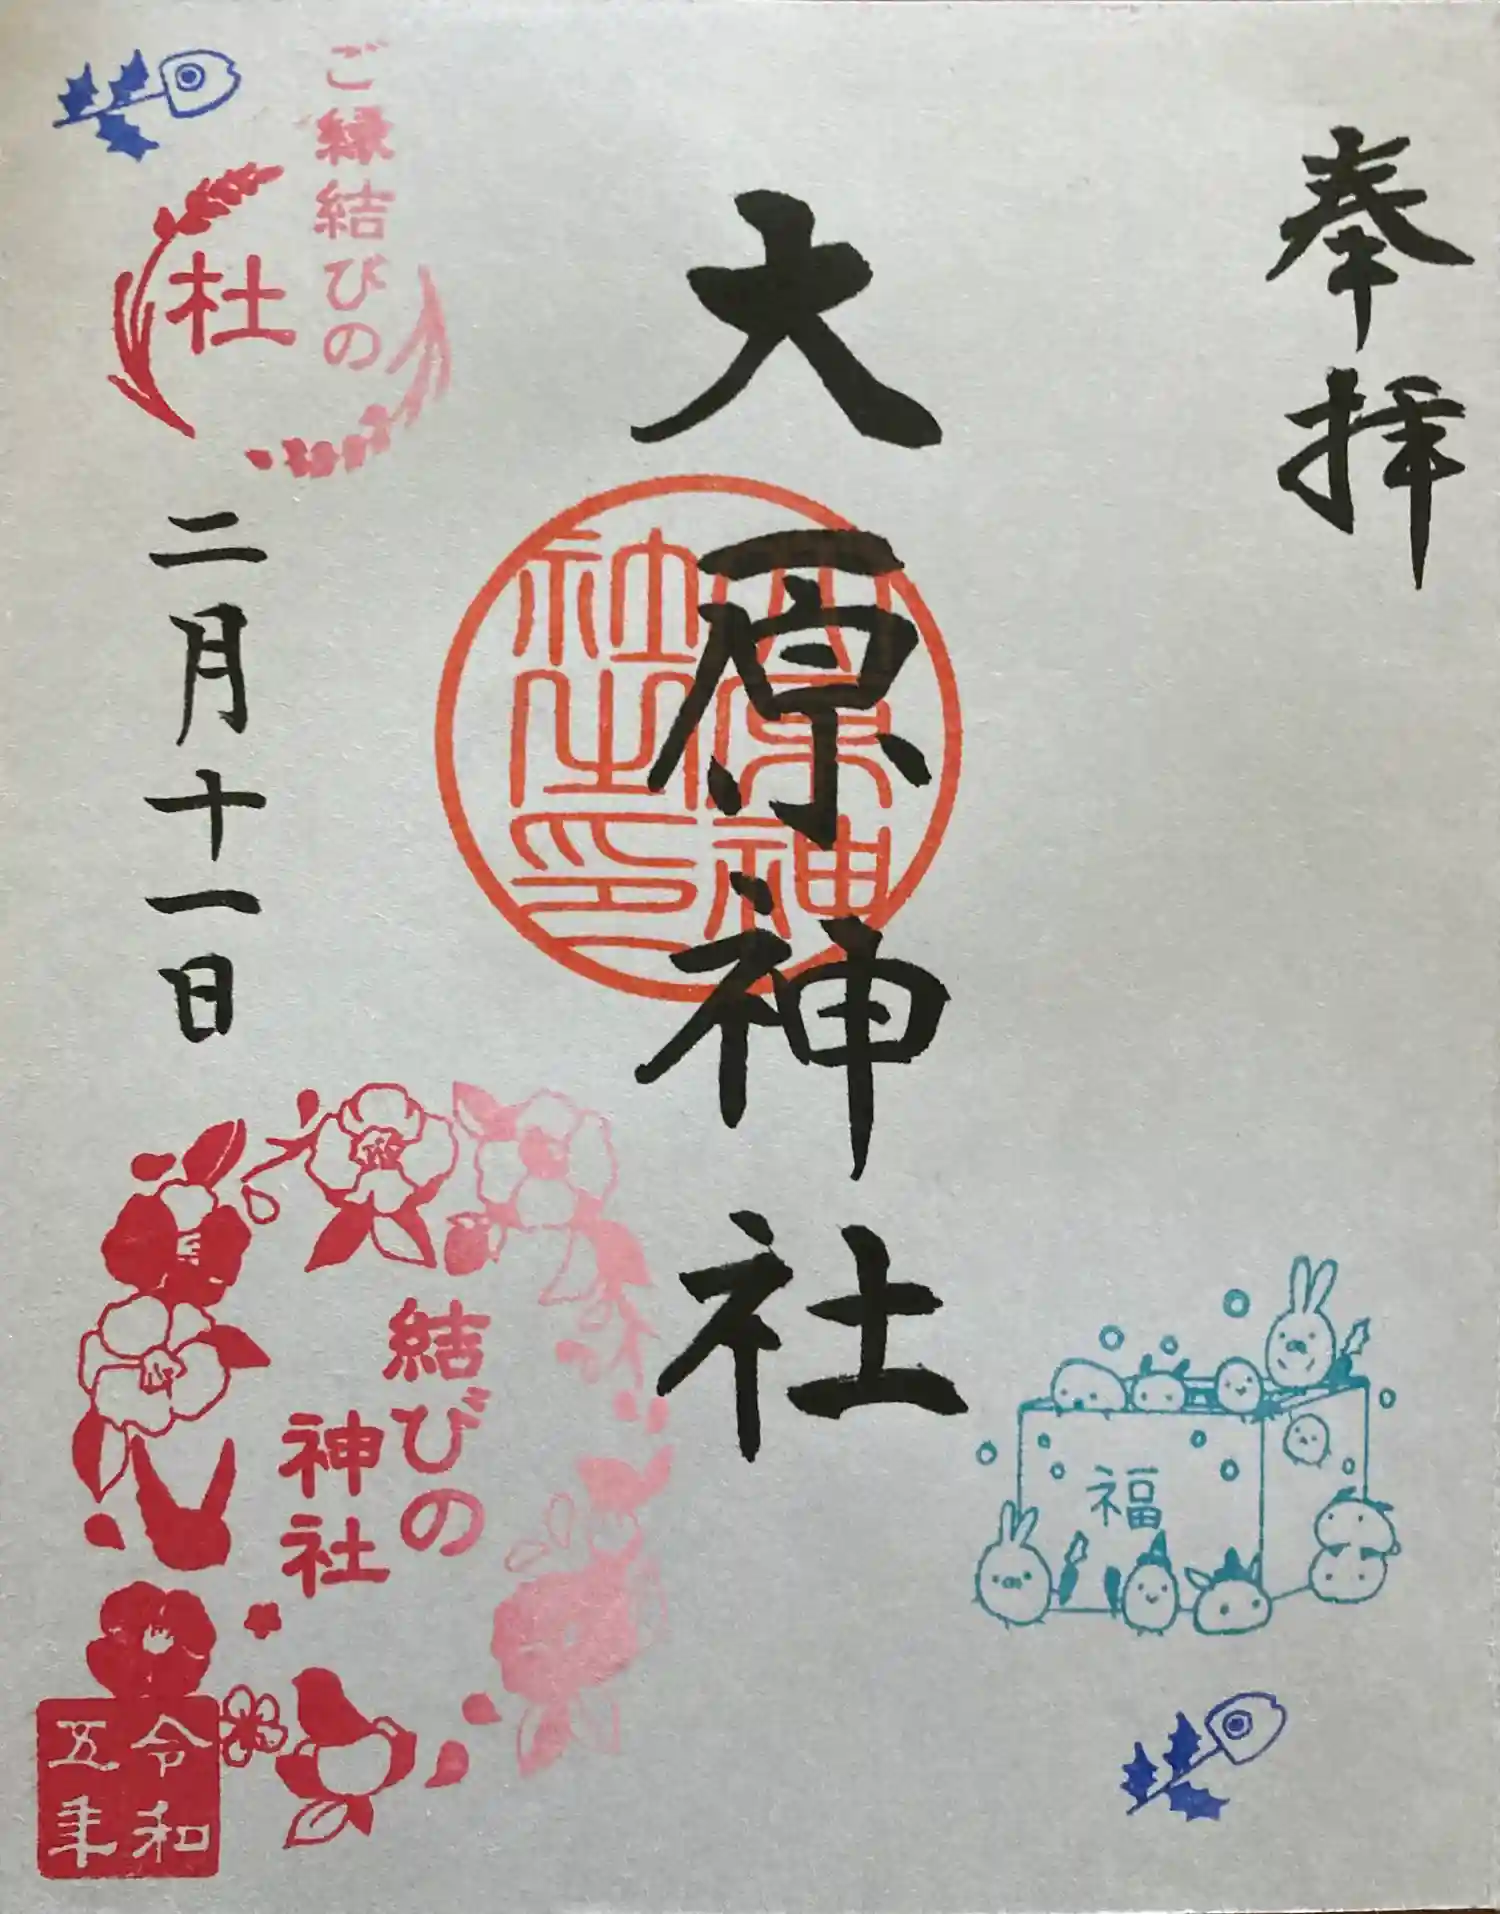 奉拝
大原神社
大原神
社之印
ご縁結びの
杜
二月十一日
結びの
神社
令和
五年
福